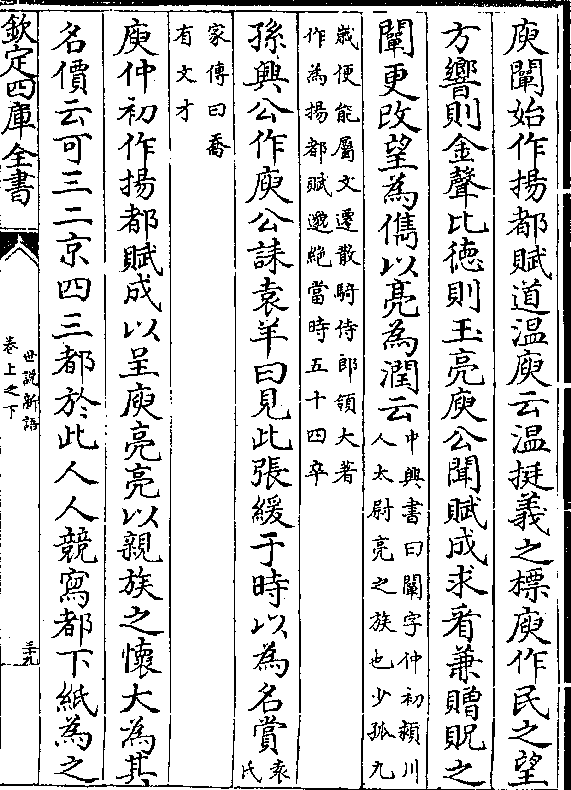 庾闡始作揚都賦道温庾云温挺義之標庾作民之望
方響則金聲比德則玉亮庾公聞賦成求看兼贈貺之
闡更改望為儁以亮為潤云
中興書曰闡字仲初潁川
人太尉亮之族也少孤九
歲便能屬文遷散騎侍郎領大著
作為揚都賦邈絶當時五十四卒
孫興公作庾公誄袁羊曰見此張緩于時以為名賞
袁
氏
家傳曰喬
有文才
庾仲初作揚都賦成以呈庾亮亮以親族之懷大為其
名價云可三二京四三都於此人人競寫都下紙為之
欽定四庫全書
世說新語
卷上之下
三十九